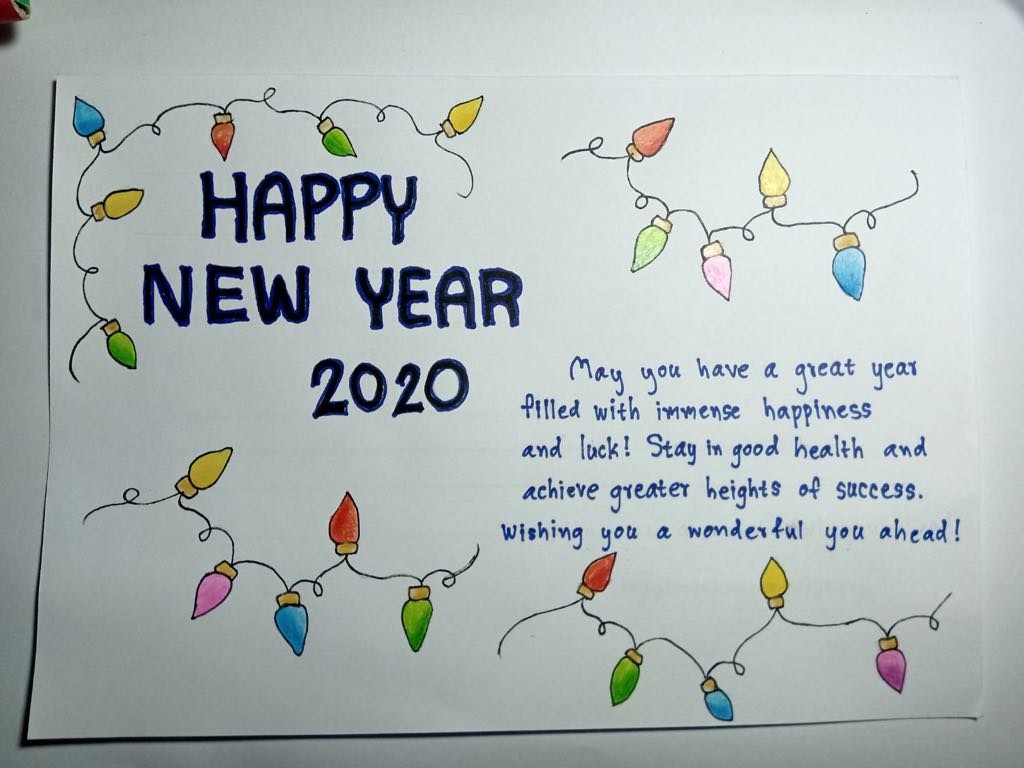 HAPPY
NEW YEAR
2020
May you have a great year
filled with immense happiness
and luck! Stay in good health and
achieve greater heights of success.
Wishing you a wonderful you ahead!